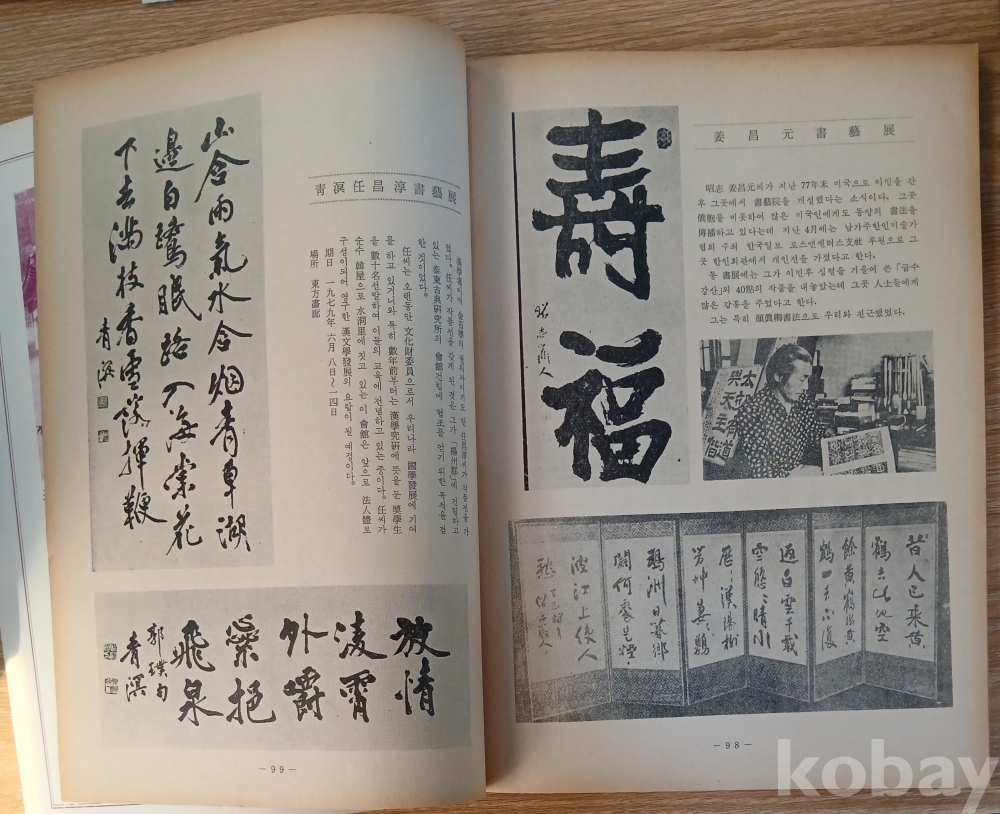 姜昌元書藝展
昭志 姜昌元씨가 지난 77年末 미국으로 이민을 간
후 그곳에서 書藝院을 개설했다는 소식이다. 그곳
僑胞를 비롯하여 많은 미국인에게도 동양의 書法을
傳播하고 있다는데 지난 4月에는 남가주한인미술가
협회 주최 한국일보 로스앤젤러스支社 후원으로 그
곳 한인회관에서 개인전을 가졌다고 한다.
동 書展에는 그가 이민후 심혈을 기울여 쓴 「금수
강산」외 40點의 작품을 내놓았는데 그곳 人士들에게
많은 감흥을 주었다고 한다.
그는 특히 顔眞卿書法으로 우리와 친근했었다.
壽
福
昭志道人
昔人已乘黃
鶴去此地空
餘黃鶴樓黃
鶴一去不復
返白雲千載
空悠々晴川
歷々漢陽樹
芳艸萋々鸚
鵡洲日暮鄕
關何處是煙
波江上使人
愁
－98－
靑溟任昌淳書藝展
漢學者이며 金石學의
졌다. 任씨가 작품전을 갖게 된 것은 그가 「楊州郡」에 건립하고
있는 泰東古典硏究所의 會館건립에 협조를 얻기 위한 목적을 겸
한 것이었다.
任씨는 오랜동안 文化財委員으로서 우리나라 國學發展에 기여
를 하고 있거니와 특히 數年前부터는 漢學究硏에 뜻을 둔 奬學生
을 數十名선발하여 이들의 교육에 전념하고 있는 중이다. 任씨가
순수 韓屋으로 水洞里에 짓고 있는 이 會館은 앞으로 法人體로
구성이되어 영구한 漢文學發展의 요람이 될 예정이다.
期日 一九七九年 六月 八日～一四日
場所 東方畫廊
山含雨氣水含烟靑草湖
邊白鷺眠路入海棠花
下去滿枝香雪落揮鞭
靑溟
放情
淩霄
外嚼
蘂挹
飛泉
郭璞句
靑溟
－99－
kobay